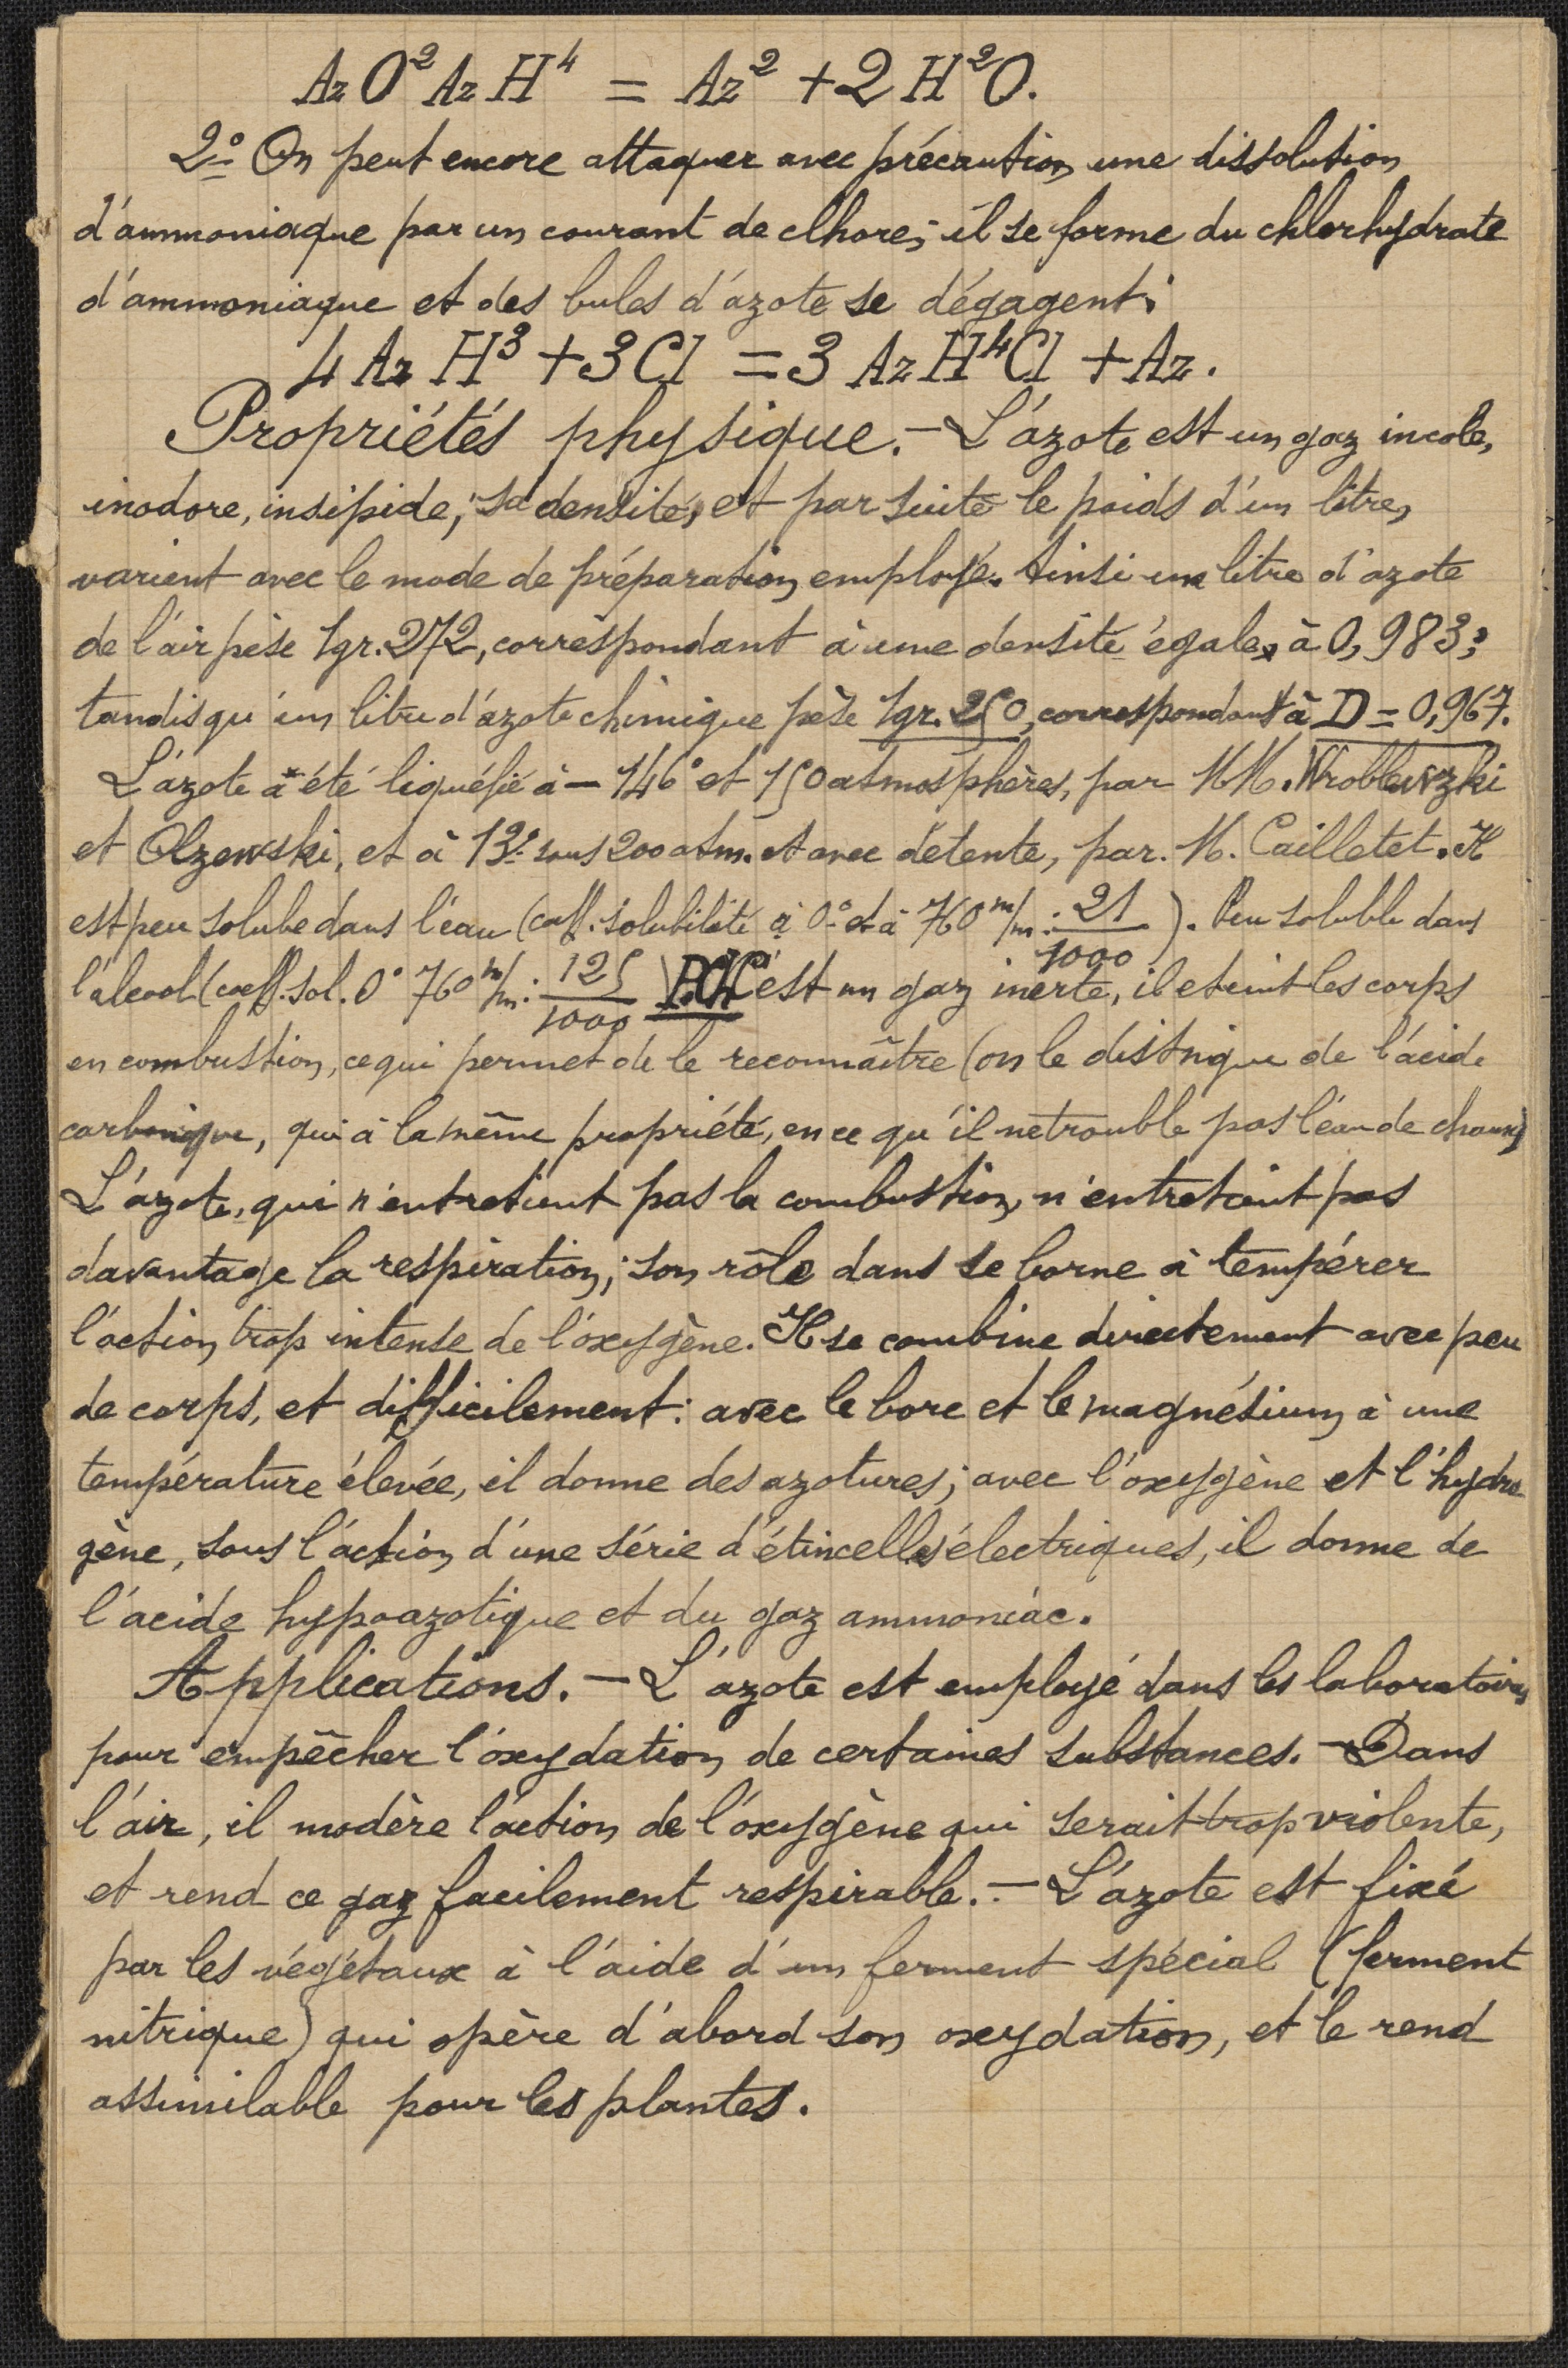 AzO²AzH⁴ = Az² + 2H²O.
2º On peut encore attaquer avec précaution une dissolution
d'ammoniaque par un courant de clhore; il se forme du chlorhydrate
d'ammoniaque et des bules d'azote se dégagent:
4AzH³ + 3Cl = 3AzH⁴Cl + Az.
Propriétés physique. - L'azote est un gaz incole,
inodore, insipide; sa densité, et par suite le poids d'un litre,
varient avec le mode de préparation employé. Ainsi un litre d'azote
de l'air pèse 1gr.272, correspondant à une densité égale, à 0,983;
tandis qu'un litre d'azote chimique pèse 1gr.250, correspondant à D = 0,967.
L'azote a été liquéfié à - 146° et 150 atmosphères, par MM. Wroblewzki
et Olzewski, et à 13° sous 200 atm. et avec détente, par. M. Cailletet. Il
est peu solube dans l'eau (coff. solubilité à 0° et à 760 m/m : 21/1000). Peu soluble dans
l'alcool (coeff. sol. 0° 760 m/m : 125/1000 P.Ch C'est un gaz inerte, il eteint les corps
en combustion, ce qui permet de le reconnaître (on le distnigue de l'acide
carbonique, qui à la même propriété, en ce qu'il ne trouble pas l'eau de chaux)
L'azote, qui n'entretient pas la combustion, n'entretient pas
davantage la respiration; son rôle dans se borne à tempérer
l'action trop intense de l'oxygène. Il se combine directement avec peu
de corps, et difficilement: avec le bore et le magnésium à une
température élevée, il donne des azotures; avec l'oxygène et l'hydro
gène, sous l'action d'une série d'étincelles électriques, il donne de
l'acide hypoazotique et du gaz ammoniac.
Applications. - L'azote est employé dans les laboratoires
pour empêcher l'oxydation de certaines substances. - Dans
l'air, il modère l'action de l'oxygène qui serait trop violente,
et rend ce gaz facilement respirable. - L'azote est fixé
par les végétaux à l'aide d'un ferment spécial (ferment
nitrique) qui opère d'abord son oxydation, et le rend
assimilable pour les plantes.